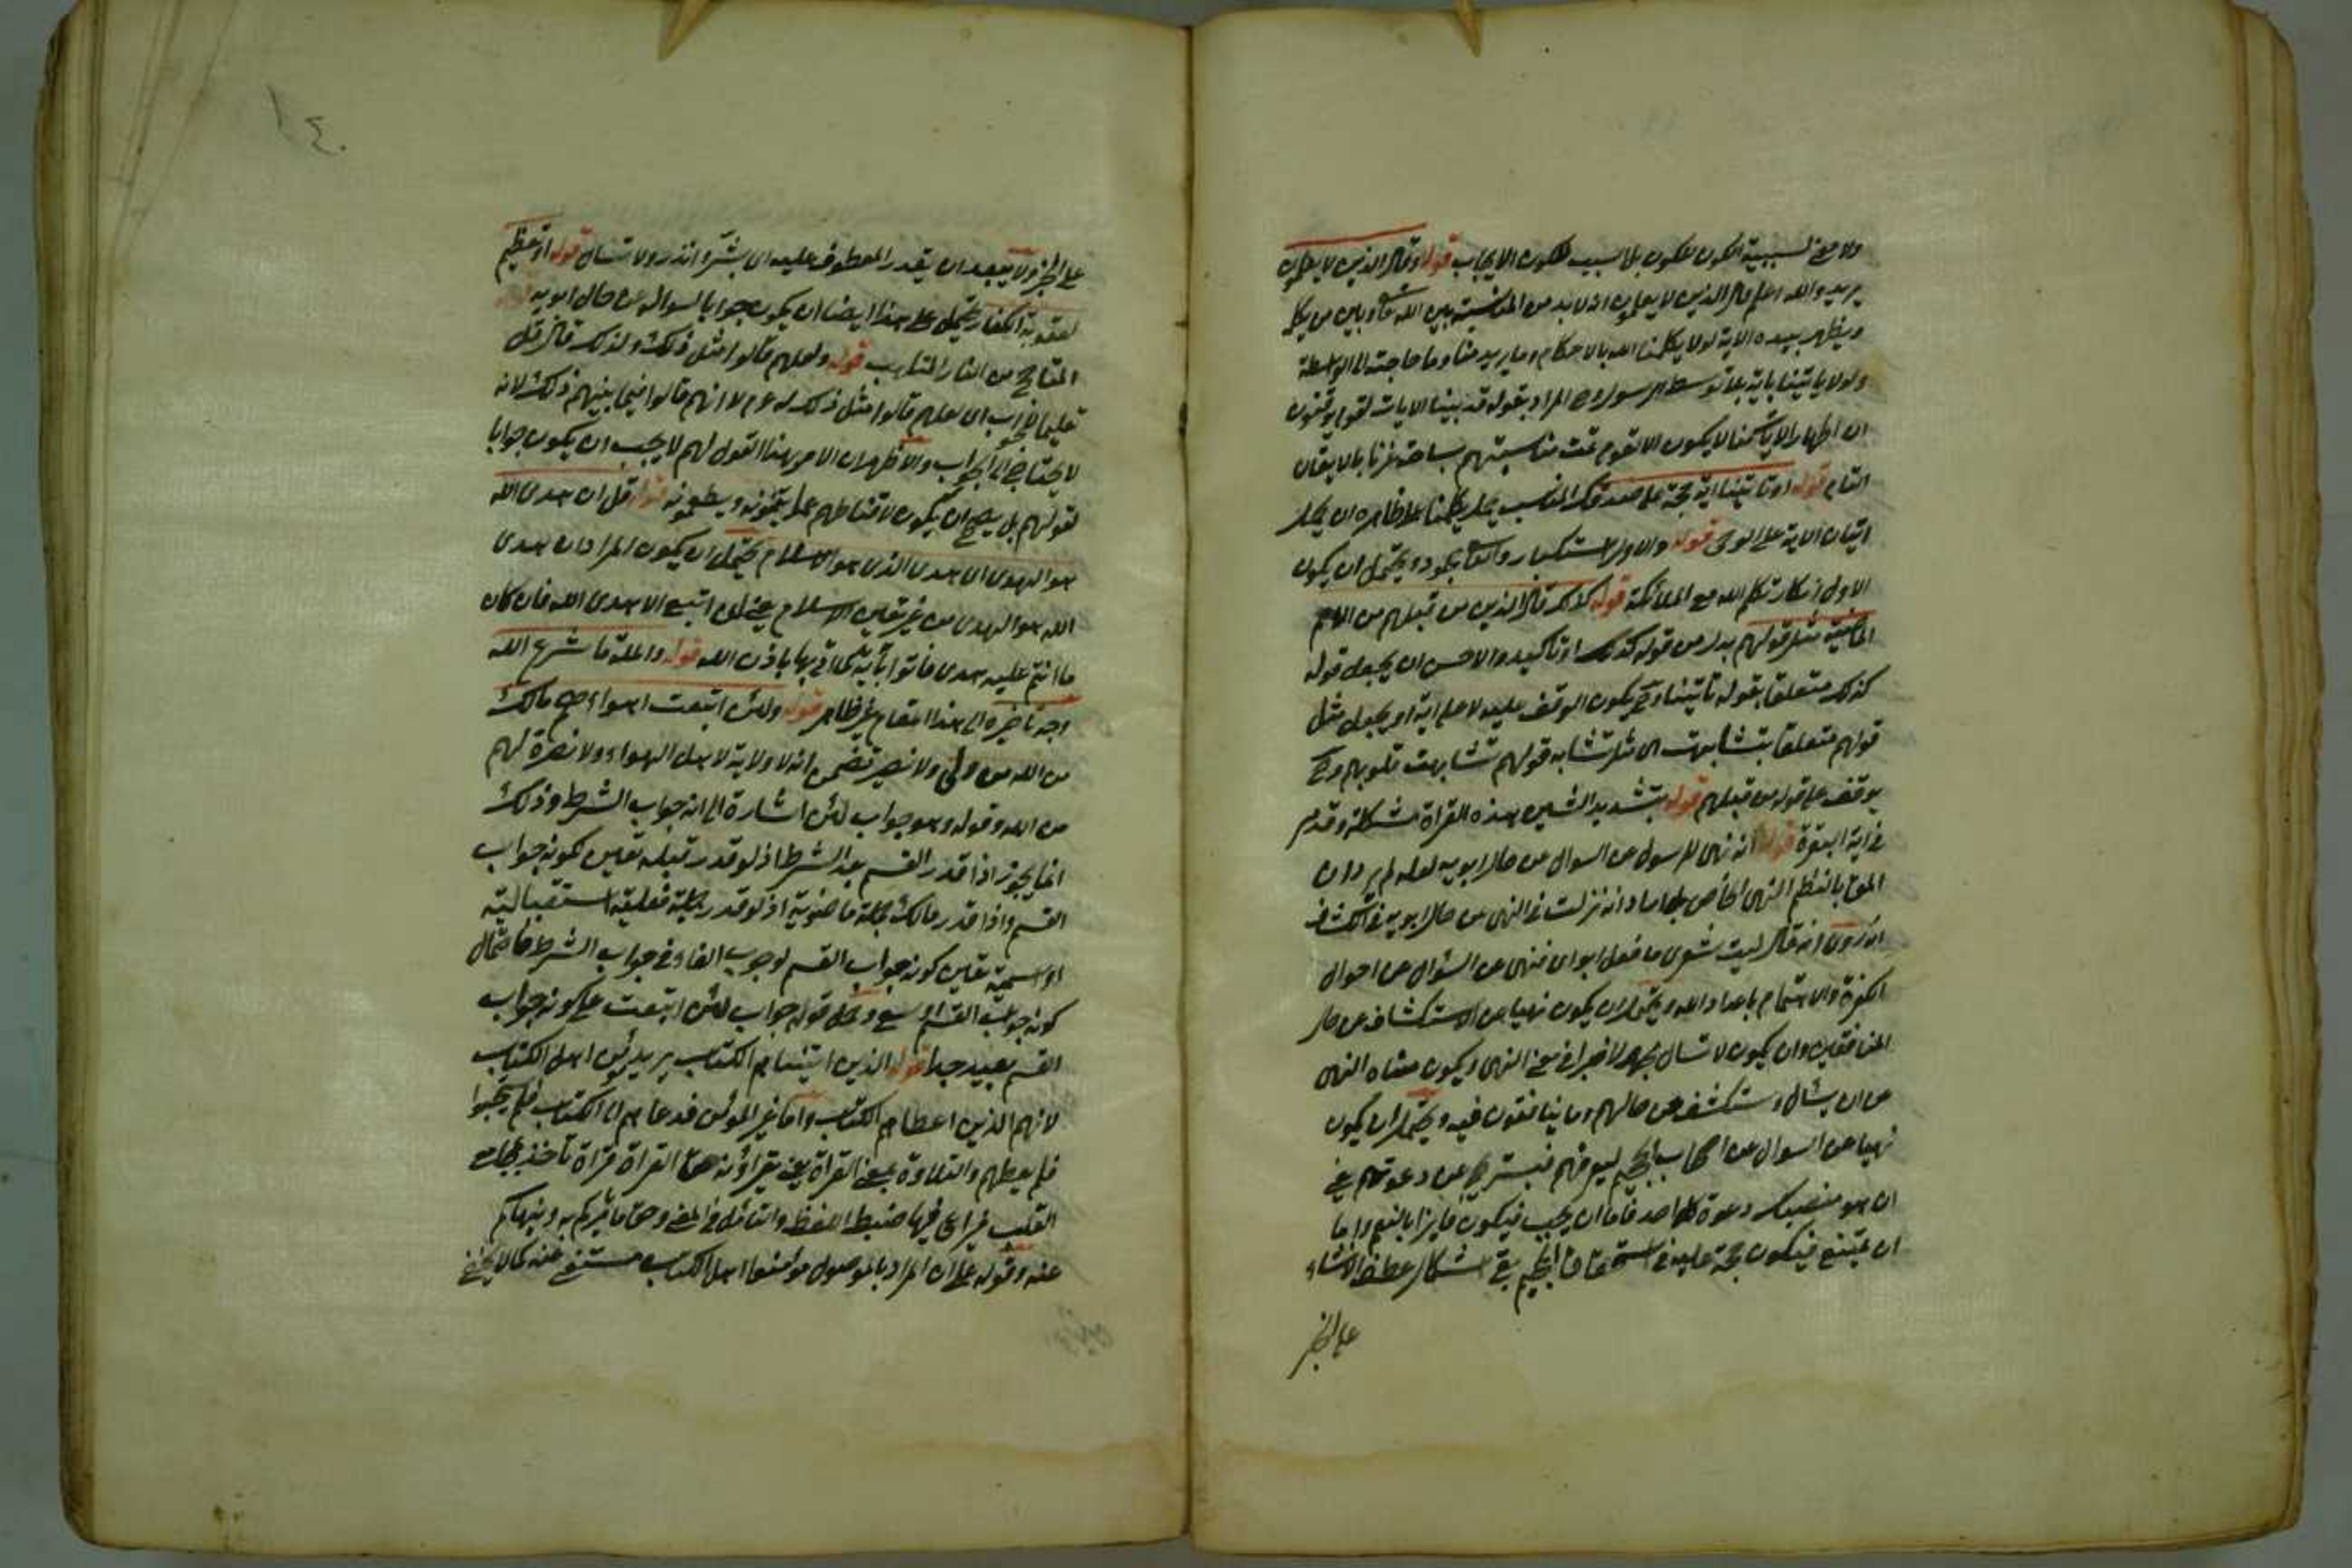 ولا معنى لسببية الكون للكون بل السبب للكون الايجاب قوله وقال الذين لا يعلمون
يريد والله اعلم قال الذين لا يعلمون انه لا بد من المناسبة بين الله تعالى وبين من يكلم
ويظهر بيده الاية لولا يكلمنا الله بالاحكام وما يريد منا وما حاجته الى الواسطة
ولولا ياتينا باية بلا توسط الرسول وح المراد بقوله قد بينا الايات لقوم يوقنون
ان اظهار الايات منا لا يكون الا لقوم تمت مناسبتهم بساحة عزنا بالايقان
التام قوله او تاتينا اية حجة على صدقك المناسب يكلمنا على ظاهره ان يحمل
اتيان الاية على الوحى قوله والاول استكبار والثانى جحود ويحتمل ان يكون
الاول انكار تكلم الله مع الملائكة قوله كذلك قال الذين من قبلهم من الامم
الماضية مثل قولهم بدل من قوله كذلك او تاكيد والاحسن ان يجعل قوله
كذلك متعلقا بقوله تاتينا وح يكون الوقف عليه لا على اية او يجعل مثل
قولهم متعلقا بتشابهت اى مثل تشابه قولهم تشابهت قلوبهم وح
يوقف على قوله من قبلهم قوله بتشديد الشين هذه القراة مشكلة وقد مر
فى اية البقرة قوله انه نهى للرسول عن السوال عن حال ابويه لعله لم يرد ان
المق بالنظم النهى الخاص بل اراد انه نزلت فى النهى عن حال ابويه فى الكشاف
انه روى انه قال ليت شعرى ما فعل ابواى فنهى عن السؤال عن احوال
الكفرة والاهتمام باعداء الله ويحتمل ان يكون نهيا عن الاستكشاف عن حال
المنافقين وان يكون لا تسال مجهولا خبرا فى معنى النهى ويكون معناه النهى
عن ان يسال ويستكشف عن حالهم وما ينافقون فيه ويحتمل ان يكون
نهيا عن السوال عن اصحاب الجحيم ليعرفهم فيستريح عن دعوتهم يعنى
ان هو منصبك دعوة كل واحد فاما ان يجيب فيكون فايزا بالنعيم واما
ان يمتنع فيكون حجة عليه فى استحقاق الجحيم بقى اشكال عطف الانشاء
على الخبر
١٤٠
على الخبر ولا يبعد ان يقدر المعطوف عليه اى بشر وانذر ولا تسال قوله او تعظيم
لعقوبة الكفار يحتمل على هذا ايضا ان يكون جوابا لسواله عن حال ابويه
المتاجج من النار المتلهب قوله ولعلهم قالوا مثل ذلك ولذلك قال قل
تعليما للجواب اى لعلهم قالوا مثل ذلك له عم لا انهم قالوا فيما بينهم ذلك لانه
لا يحتاج الى الجواب والاظهر ان الامر بهذا القول لهم لا يجب ان يكون جوابا
لقولهم بل يصح ان يكون لاقناطهم عما يتمنونه ويطمعونه قوله قل ان هدى الله
هو الهدى اى هدى الذى هو الاسلام يحتمل ان يكون المراد ان هدى
الله هو الهدى من غير تعيين الاسلام يعنى لن اتبع الا هدى الله فان كان
ما انتم عليه هدى فاتوا باية بها باذن الله قوله والملة ما شرع الله
وجه تاخيره الى هذا المقام غير ظاهر قوله ولئن اتبعت اهواءهم مالك
من الله من ولى ولا نصير تضمن انه لا ولاية لاهل الهواء ولا نصرة لهم
من الله وقوله وهو جواب لئن اشارة الى انه جواب الشرط وذلك
انما يجوز اذا قدر القسم بعد الشرط اذ لو قدر قبله تعين كونه جواب
القسم واذا قدر مالك جملة ماضوية اذ لو قدر جملة فعلية استقبالية
او اسمية تعين كونه جواب القسم لوجوب الفاء فى جواب الشرط فاحتمال
كونه جواب القسم اوسع وحمل قوله جواب لئن اتبعت على كونه جواب
القسم بعيد جدا قوله الذين اتيناهم الكتاب يريد مؤمنى اهل الكتاب
لانهم الذين اعطاهم الكتاب واما غير المؤمن فدعاهم الى الكتاب فلم يجيبوا
فلم يعطهم والتلاوة بمعنى القراة يعنى يقراؤنه حق القراة قراة تاخذ بمجامع
القلب فيراعى فيها ضبط اللفظ والتامل فى المعنى وحق ما يامركم به وينهاكم
عنه وقوله على ان المراد بالموصول مؤمنوا اهل الكتاب مستغنى عنه كما لا يخفى